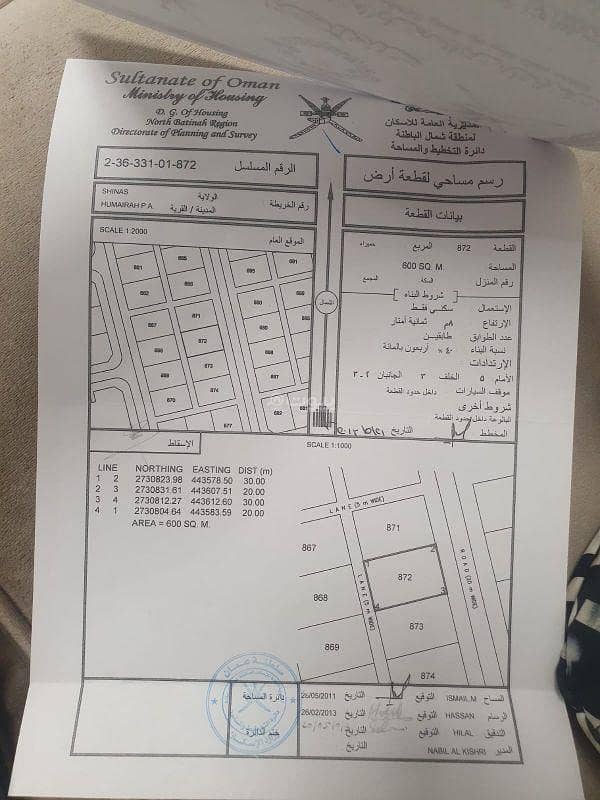 Sultanate of Oman
Ministry of Housing
D. G. Of Housing
North Batinah Region
Directorate of Planning and Survey
المديرية العامة للاسكان
لمنطقة شمال الباطنة
دائرة التخطيط والمساحة
2-36-331-01-872 الرقم المسلسل
رسم مساحي لقطعة أرض
SHINAS الولاية
HUMAIRAH P.A. المدينة / القرية
رقم الخريطة
بيانات القطعة
SCALE 1:2000
الموقع العام
الشمال
القطعة 872 المربع حميراء
المساحة 600 SQ. M.
رقم المنزل السكة المجمع
شروط البناء
الإستعمال سكني فقط
الإرتفاع ٨م ثمانية أمتار
عدد الطوابق طابقين
نسبة البناء ٤٠% أربعون بالمائة
الإرتدادات
الأمام ٥ الخلف ٣ الجانبان ٢-٣
موقف السيارات داخل حدود القطعة
شروط أخرى
البالوعة داخل حدود القطعة
المخطط التاريخ
661
665
695
691
662
666
660
690
667
871
868
872
869
873
874
870
877
687
682
681
الإسقاط
SCALE 1:1000
LINE NORTHING EASTING DIST (m)
1 2 2730823.98 443578.50 30.00
2 3 2730831.61 443607.51 20.00
3 4 2730812.27 443612.60 30.00
4 1 2730804.64 443583.59 20.00
AREA = 600 SQ. M.
LANE (5 m WIDE)
871
867
ROAD (20 m WIDE)
1
2
872
LANE (5 m WIDE)
868
3
4
873
869
874
دائرة المساحة
ختم الدائرة
المساح ISMAIL.M التوقيع التاريخ 26/05/2011
الرسام HASSAN التوقيع التاريخ 26/02/2013
التدقيق HILAL التوقيع التاريخ
المدير NABIL AL KISHRI التاريخ